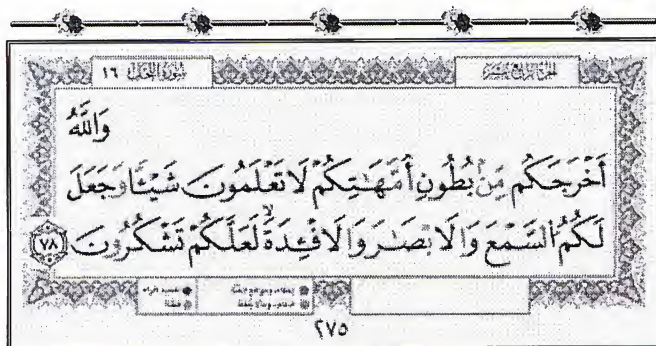 الجزء الرابع عشر
سورة النحل ١٦
وَاللَّهُ
أَخْرَجَكُم مِّنۢ بُطُونِ أُمَّهَٰتِكُمْ لَا تَعْلَمُونَ شَيْـًٔا وَجَعَلَ
لَكُمُ السَّمْعَ وَالْأَبْصَٰرَ وَالْأَفْـِٔدَةَ ۙ لَعَلَّكُمْ تَشْكُرُونَ ٧٨
٢٧٥